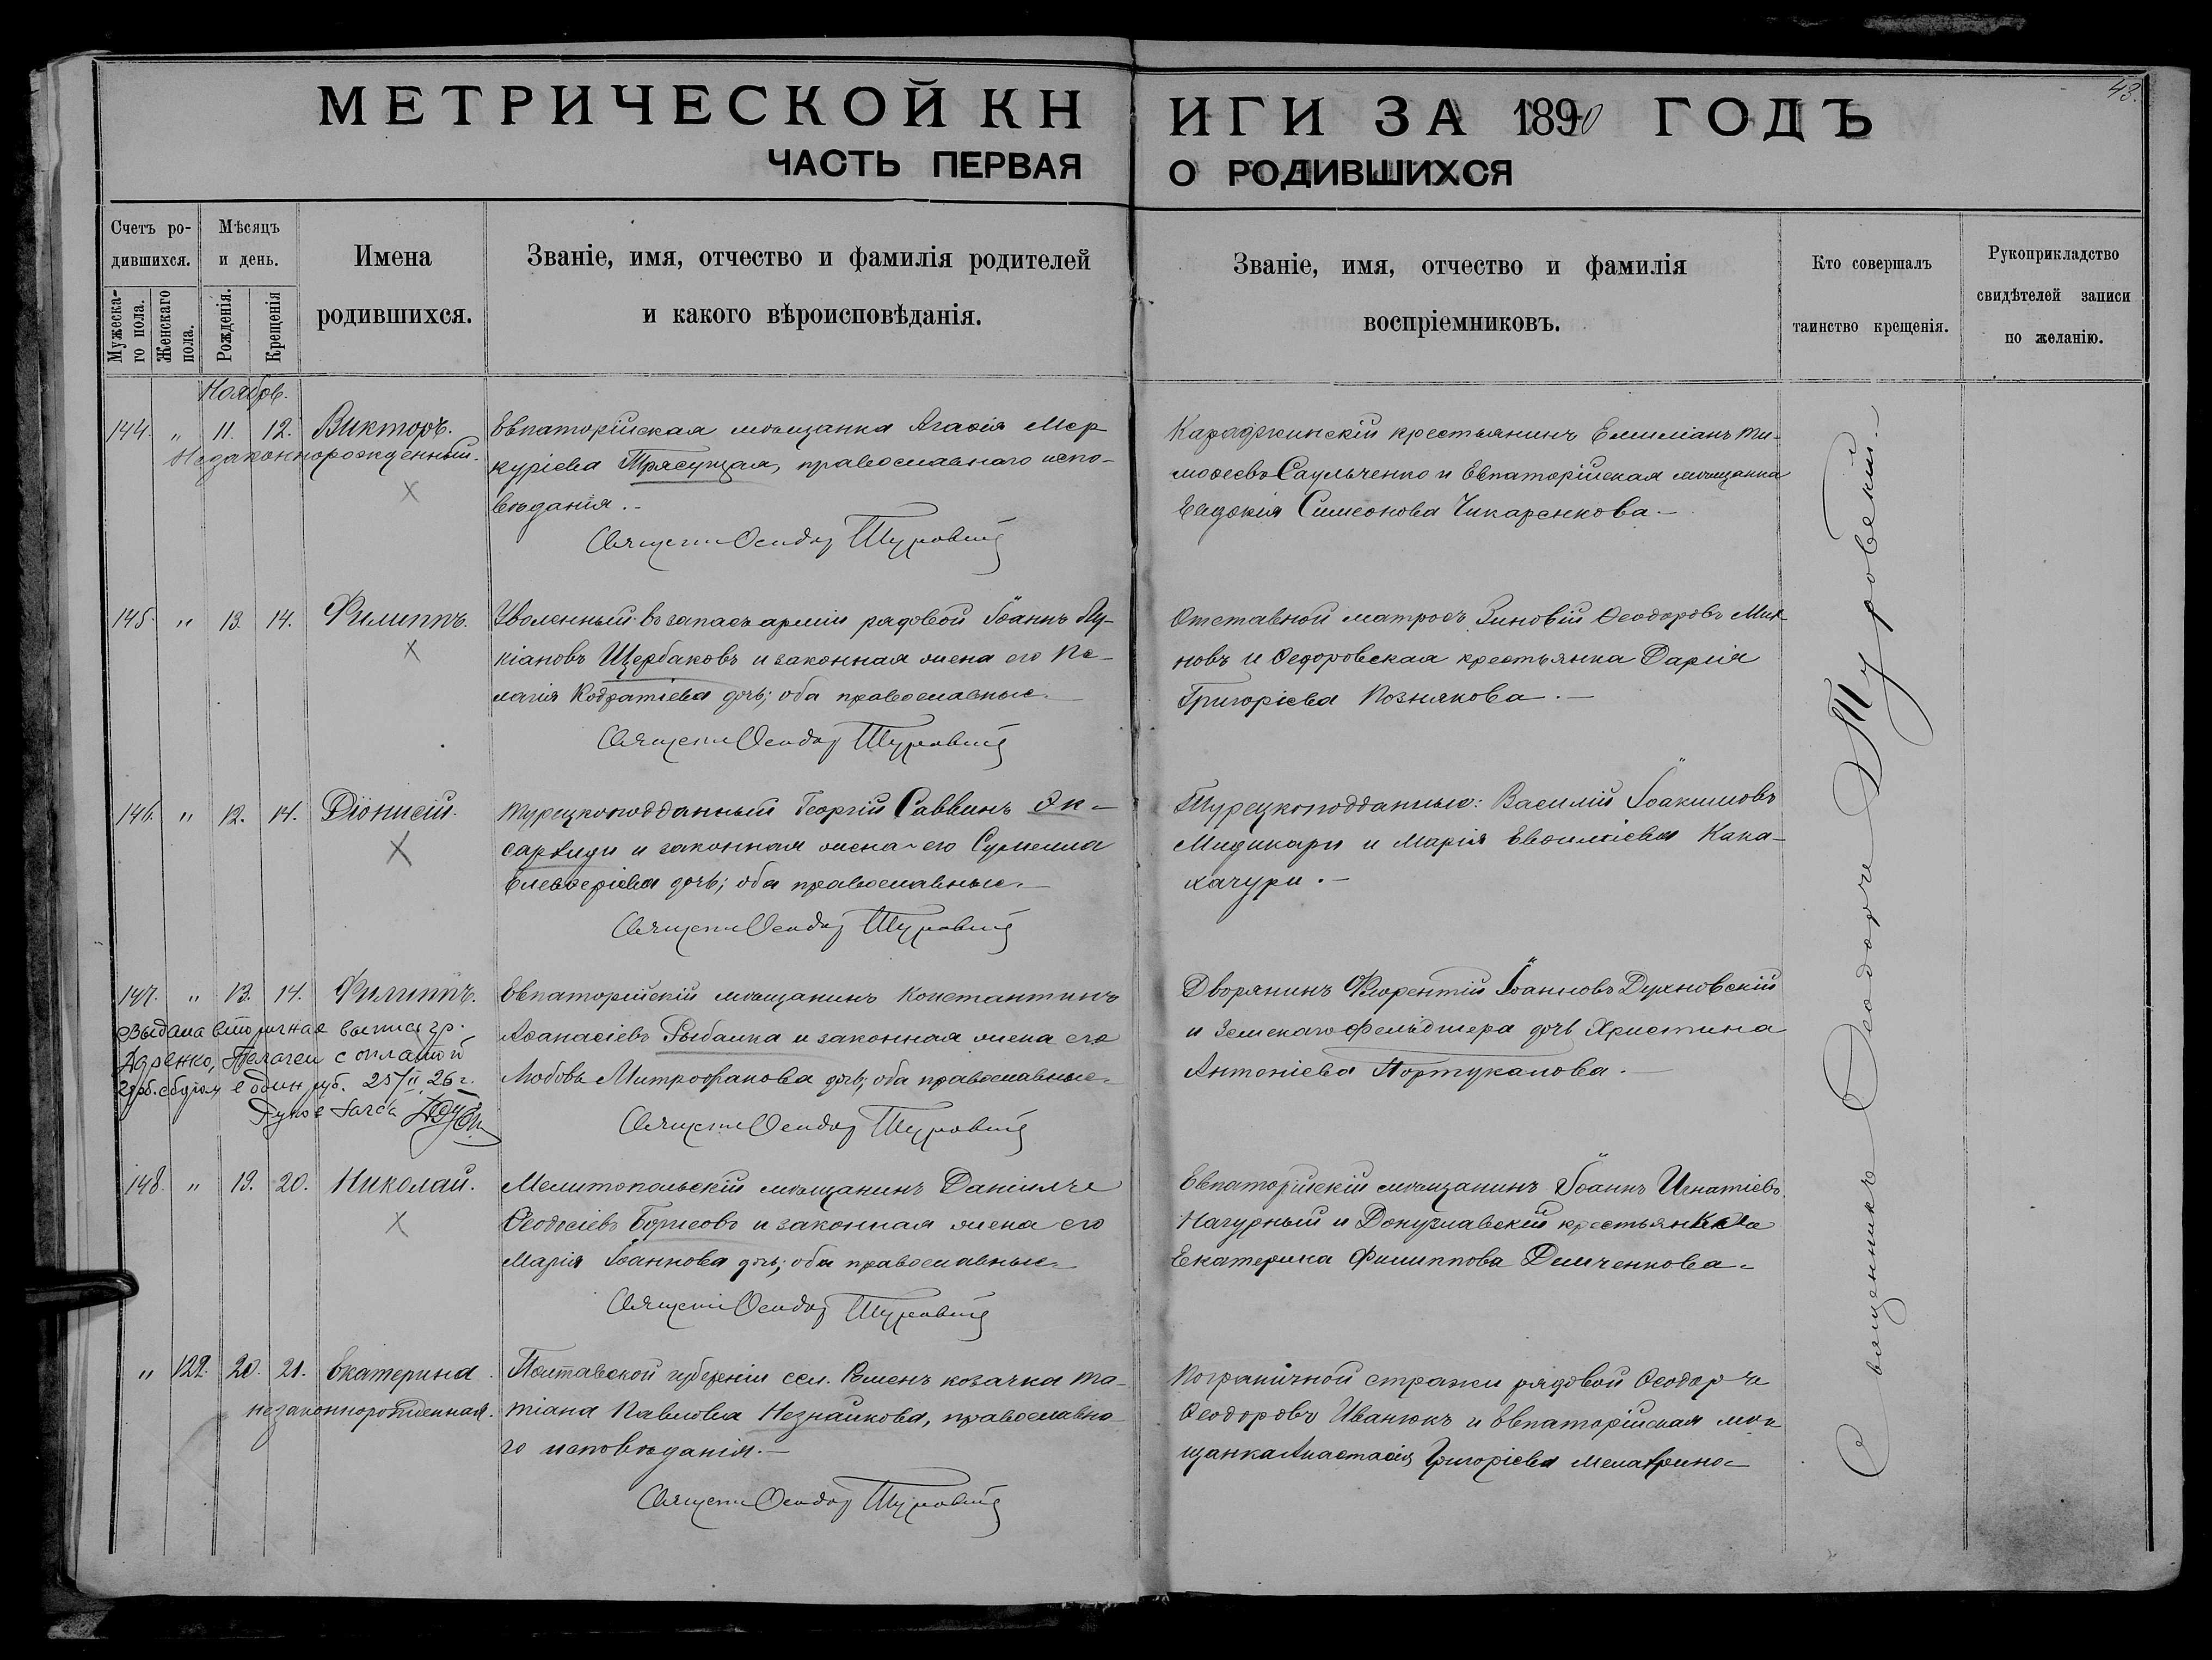 43.
МЕТРИЧЕСКОЙ КНИГИ ЗА 1890 ГОДЪ
ЧАСТЬ ПЕРВАЯ О РОДИВШИХСЯ
Счетъ ро-
дившихся.
Мужеска-
го пола.
Женскаго
пола.
Мѣсяцъ
и день.
Рожденія.
Крещенія
Имена
родившихся.
Званіе, имя, отчество и фамилія родителей
и какого вѣроисповѣданія.
Званіе, имя, отчество и фамилія
воспріемниковъ.
Кто совершалъ
таинство крещенія.
Рукоприкладство
свидѣтелей записи
по желанію.
Ноябрь.
144. " 11. 12. Викторъ.
Незаконнорожденный.
Евпаторійская мѣщанка Агаѳія Мер
куріева Трясущая, православнаго испо-
вѣданія.
Священ Ѳеодор Туровскій
Караджинскій крестьянинъ Емиліанъ Ти-
моѳеевъ Саульченко и Евпаторійская мѣщанка
Евдокія Симеонова Чикаренкова.
145. " 13. 14. Филиппъ.
Уволенный въ запасъ арміи рядовой Іоаннъ Лу-
кіановъ Щербаковъ и законная жена его Пе-
лагія Кодратіева дочь; оба православные.
Священ Ѳеодор Туровскій
Отставной матросъ Зиновій Ѳеодоровъ
новъ и Ѳедоровская крестьянка Дарія
Григоріева Познякова.
146. " 12. 14. Діонисій.
Турецкоподданный Георгій Саввинъ Эк-
сархиди и законная жена его Сумелла
Елевѳеріева дочь; оба православные.
Священ Ѳеодор Туровскій
Турецкоподданные: Василій Іоакимовъ
Мидикари и Марія Евѳиміева Кака-
хачури.
147. " 13. 14. Филиппъ.
Выдана вторичная выпись гр.
Пелагеи с оплатой
герб. сбором один руб. 25/II 26 г.
Евпаторійскій мѣщанинъ Константинъ
Аѳанасіевъ Рыбалка и законная жена его
Любовь Митрофанова дочь; оба православные.
Священ Ѳеодор Туровскій
Дворянинъ Флорентій Іоанновъ Духновскій
и Земскаго фельдшера дочь Христина
Антоніева Портукалова.
148. " 19. 20. Николай.
Мелитопольскій мѣщанинъ Даніилъ
Ѳеодосіевъ Борисовъ и законная жена его
Марія Іоаннова дочь; оба православные.
Священ Ѳеодор Туровскій
Евпаторійскій мѣщанинъ Іоаннъ Игнатіевъ
Нагурный и Донузлавскій
Екатерина Филиппова Демченкова.
" 122. 20. 21. Екатерина.
незаконнорожденная.
Полтавской губерніи сел. Роменъ козачка Та-
тіана Павлова Незнайкова, православна
го исповѣданія.
Священ Ѳеодор Туровскій
Пограничной стражи рядовой Ѳеодоръ
Ѳеодоровъ Иванюкъ и Евпаторійская мѣ
щанка Анастасія Григоріева
Священникъ Ѳеодоръ Туровскій.